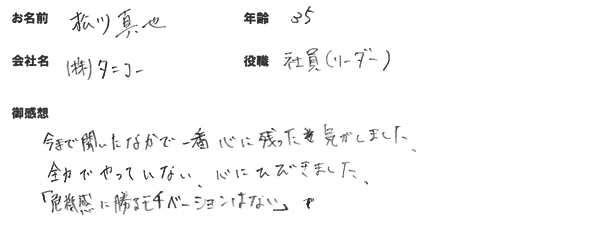 お名前 松川真也 年齢 35
会社名 (株)タニコー 役職 社員(リーダー)
御感想
今まで聞いたなかで一番心に残った気がしました。
全力でやっていない、心にひびきました。
「危機感に勝るモチベーションはない」